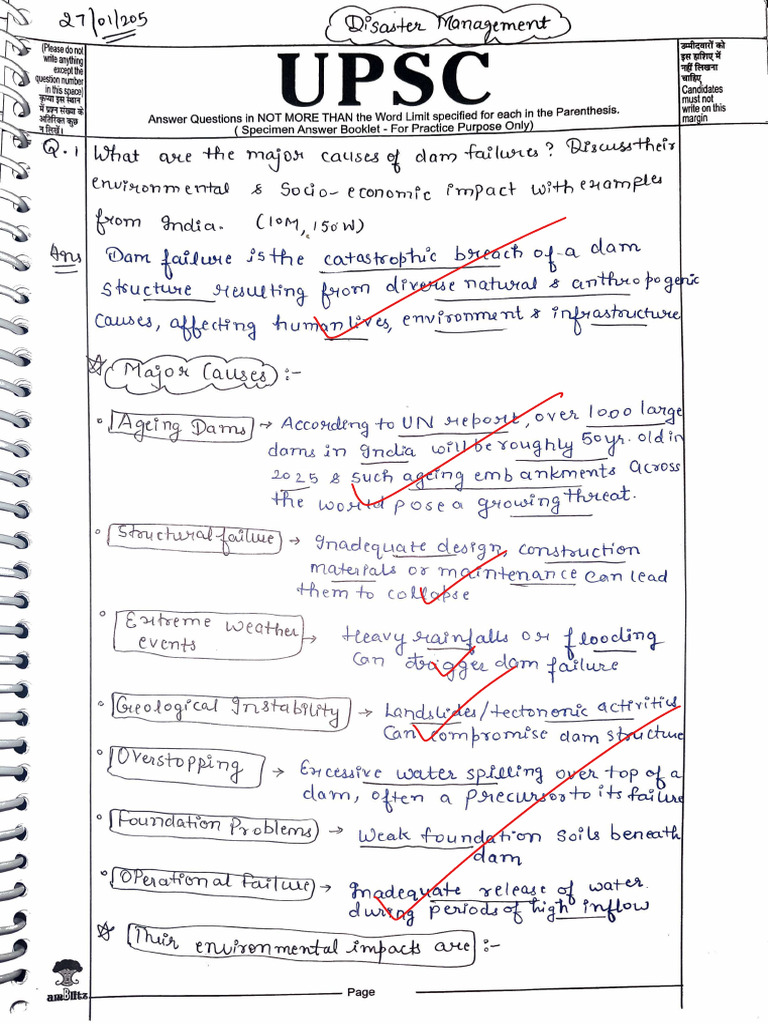 27/01/205
Disaster Management
(Please do not
write anything
except the
question number
in this space)
कृपया इस स्थान
में प्रश्न संख्या के
अतिरिक्त कुछ
न लिखें।
UPSC
Answer Questions in NOT MORE THAN the Word Limit specified for each in the Parenthesis.
( Specimen Answer Booklet - For Practice Purpose Only)
उम्मीदवारों को
इस हाशिए में
नहीं लिखना
चाहिए
Candidates
must not
write on this
margin
Q.1 What are the major causes of dam failures? Discuss their
environmental & Socio-economic impact with examples
from India. (10M, 150W)
Ans Dam failure is the catastrophic breach of a dam
structure resulting from diverse natural & anthropogenic
causes, affecting human lives, environment & infrastructure
Major Causes :-
Ageing Dams → According to UN report, over 1000 large
dams in India will be roughly 50yr. old in
2025 & such ageing embankments across
the world pose a growing threat.
Structural failure → Inadequate design, construction
materials or maintenance can lead
them to collapse
Extreme weather
events → Heavy rainfalls or flooding
can trigger dam failure
Geological Instability → Landslides/tectononic activities
Can compromise dam structure
Overstopping → Excessive water spilling over top of a
dam, often a precursor to its failure
Foundation Problems → Weak foundation soils beneath
dam
Operational Failure → Inadequate release of water
during periods of high inflow
Their environmental impacts are :-
amBlitz
Page